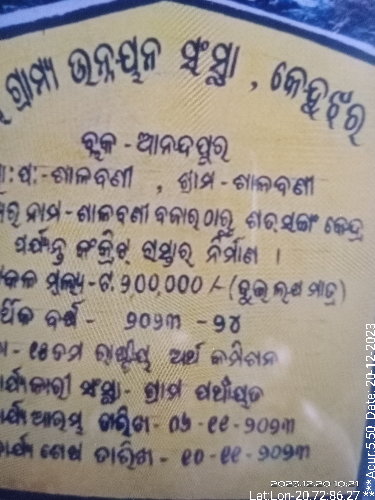 ଗ୍ରାମ୍ୟ ଉନ୍ନୟନ ସଂସ୍ଥା , କେନ୍ଦୁଝର
ବ୍ଲକ - ଆନନ୍ଦପୁର
ପ:- ଶାଳବଣୀ , ଗ୍ରାମ - ଶାଳବଣୀ
ନାମ - ଶାଳବଣୀ ବଜାର ଠାରୁ ଶତସଙ୍ଗ କେନ୍ଦ୍ର
ପର୍ଯ୍ୟନ୍ତ କଂକ୍ରିଟ୍ ରାସ୍ତାର ନିର୍ମାଣ ।
ମୂଲ୍ୟ - ଟ. ୨00,000 /- (ଦୁଇ ଲକ୍ଷ ମାତ୍ର)
ବର୍ଷ - ୨୦୨୩ - ୨୪
୧୫ତମ ରାଷ୍ଟ୍ରୀୟ ଅର୍ଥ କମିଶନ
ସଂସ୍ଥା - ଗ୍ରାମ ପଞ୍ଚାୟତ
ଆରମ୍ଭ ତାରିଖ - ୦୬ - ୧୧ - ୨୦୨୩
ଶେଷ ତାରିଖ - ୧୦ - ୧୧ - ୨୦୨୩
2023.12.20 10:21
Lat:Lon-20.72,86.27
***Acur:5.50 Date: 20-12-2023